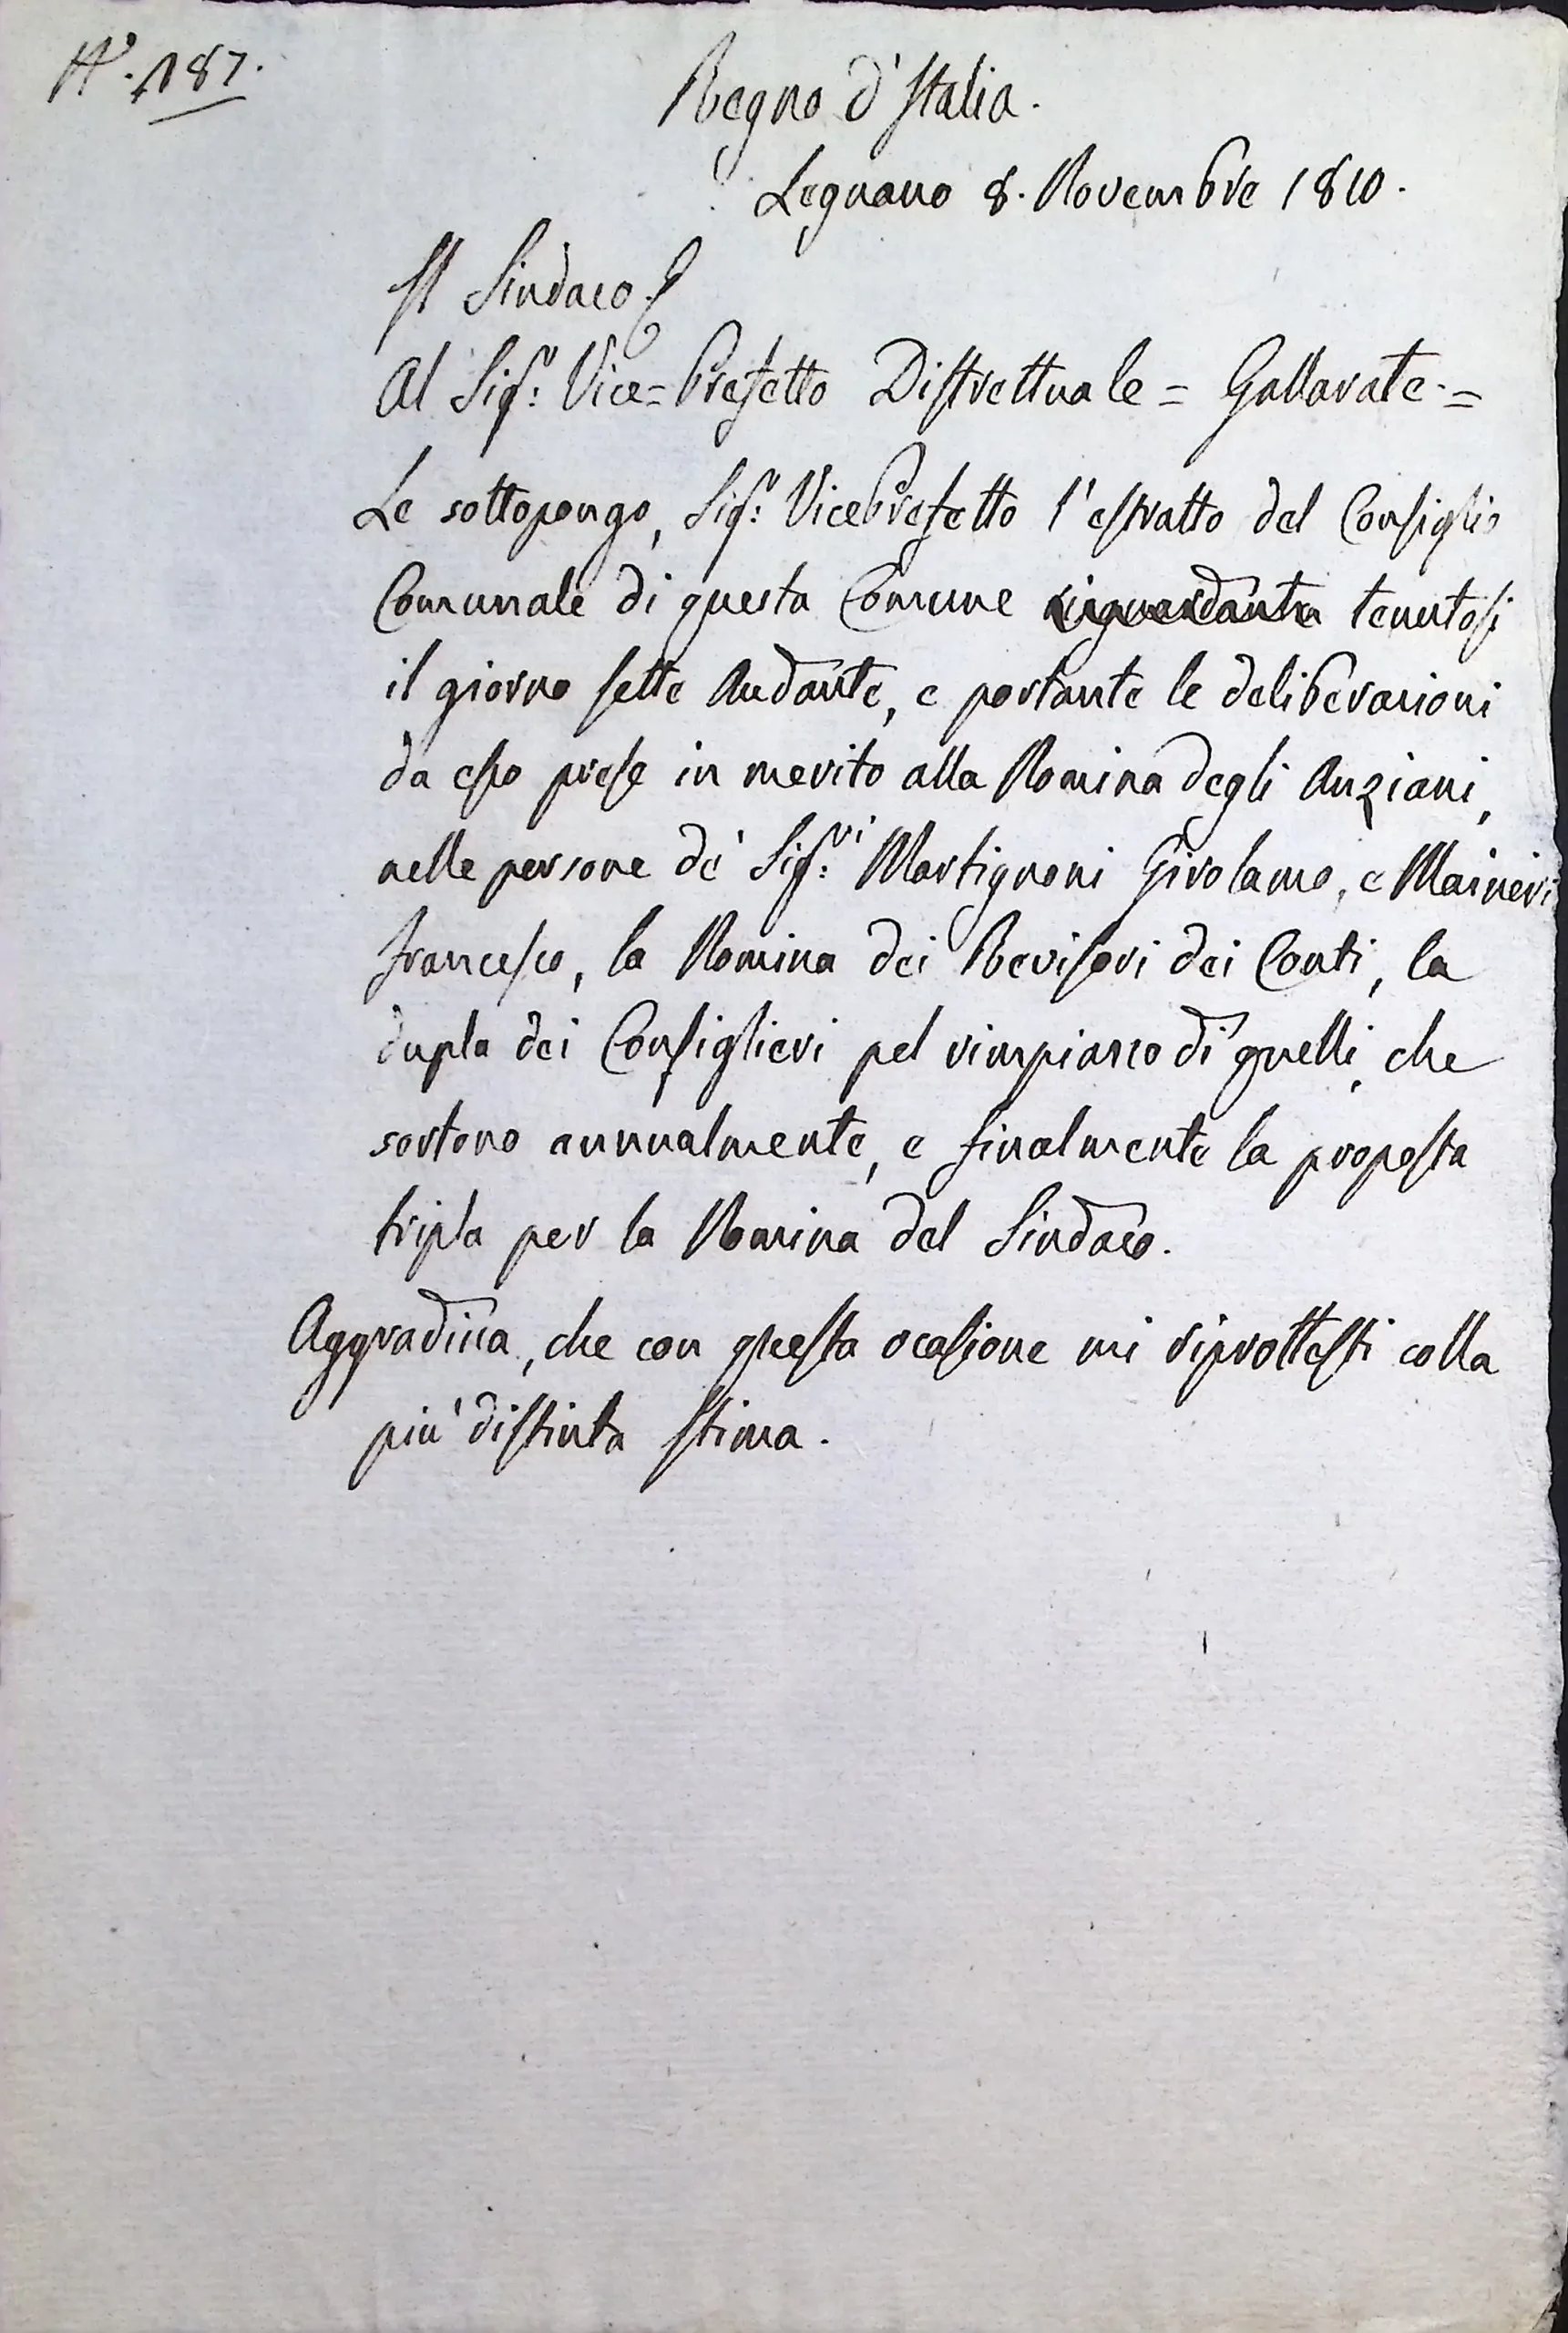 N.° 187.
Regno d'Italia.
Legnano 8. Novembre 1810.
Il Sindaco
Al Sig.r Vice=Prefetto Distrettuale = Gallarate. =
Le sottopongo, Sig.r VicePrefetto l'estratto del Consiglio
Comunale di questa Comune riguardante tenutosi
il giorno sette Andante, e portante le deliberazioni
da esso prese in merito alla Nomina degli Anziani,
nelle persone de' Sig.ri Martignoni Girolamo, e Maineri
Francesco, la Nomina dei Revisori dei Conti, la
dupla dei Consiglieri pel rimpiazzo di quelli, che
sortono annualmente, e finalmente la proposta
tripla per la Nomina del Sindaco.
Aggradisca, che con questa ocasione mi riprottesti colla
più distinta stima.